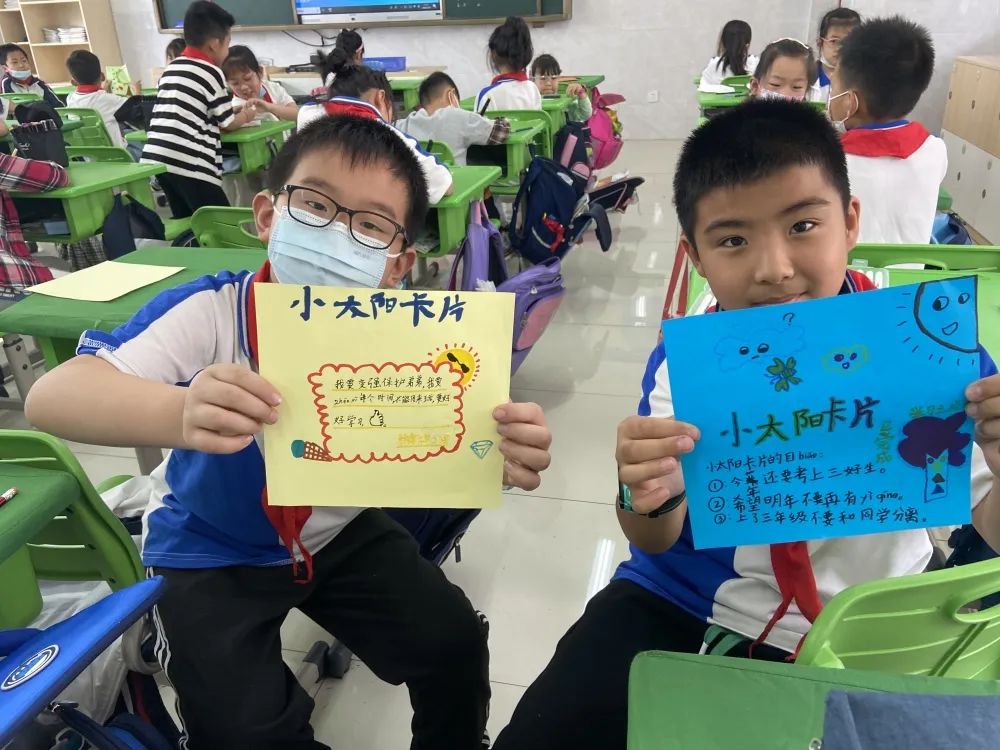 小太阳卡片
我要变强保护弟弟,我要
zhēn xī每个时间,不能浪费时间,更好
好学习
小太阳卡片
小太阳卡片的目biāo:
①今年还要考上三好生。
②希望明年不要再有yì qíng。
③上了三年级不要和同学分离。